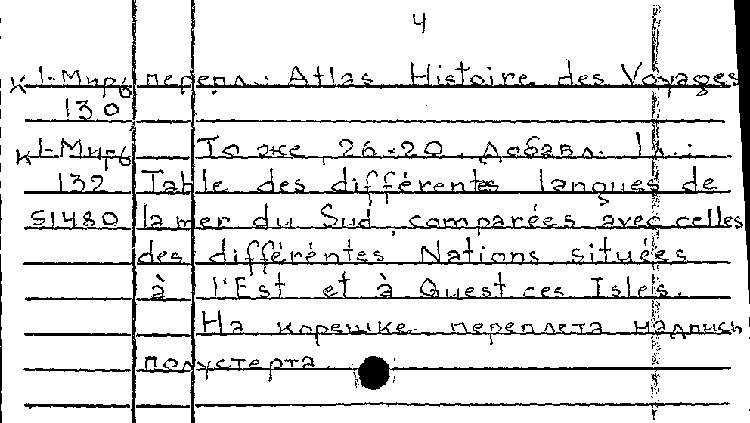 4
К 1-Мир6 перепл.: Atlas. Histoire des Voyages
130
К 1-Мир6 То же, 26×20. Добавл. 1 л.:
132 Table des différentes langues de
51480 la mer du Sud, comparées avec celles
des différéntes Nations situées
à l'Est et à Ouest ces Isles.
На корешке переплета надпись
полустерта.